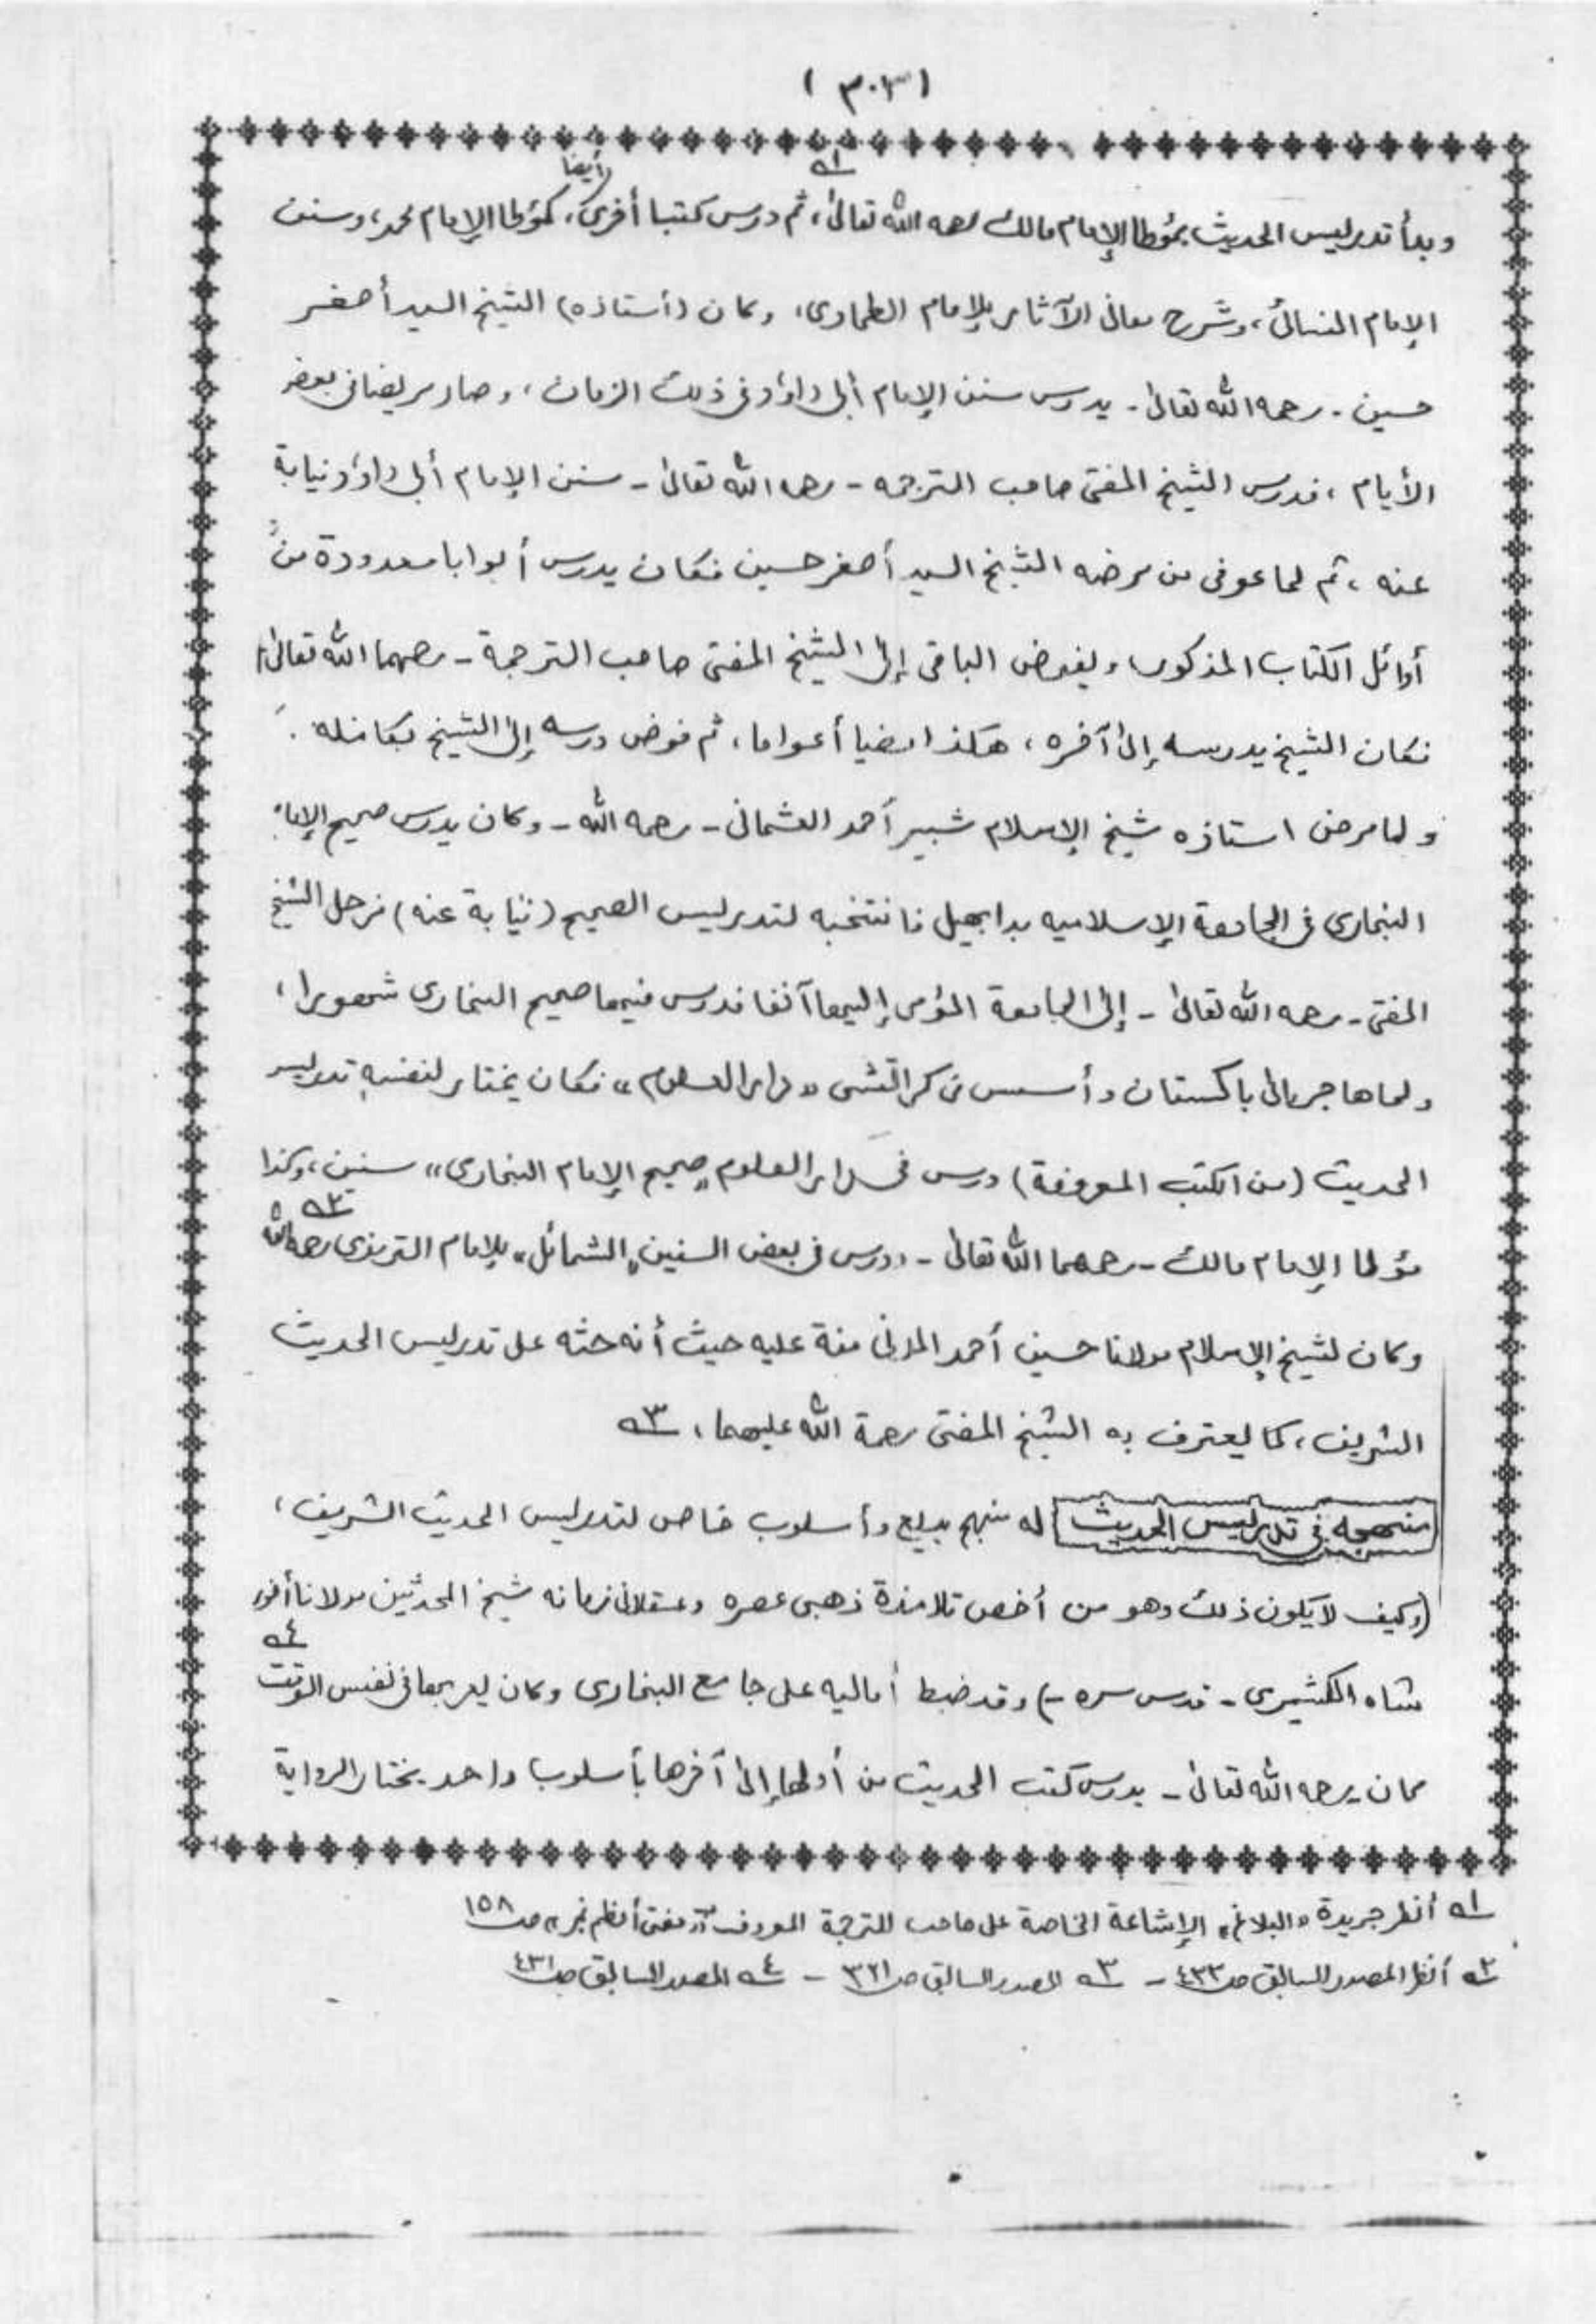 (٣٠٣)
وبدأ تدريس الحديث بمؤطا الإمام مالك رحمه الله تعالىٰ،ـ١ـه ثم درس كتبا أخرىٰ (أيضا)، كمؤطا الإمام محمد، وسنن
الإمام النسائى، وشرح معانى الآثار للإمام الطحاوى، وكان (أستاذه) الشيخ السيد أصغر
حسين - رحمه الله تعالىٰ - يدرس سنن الإمام أبى داؤد فى ذلك الزمان، وصار مريضا فى بعض
الأيام، فدرس الشيخ المفتى صاحب الترجمه - رحمه الله تعالىٰ - سنن الإمام أبى داؤد نيابة
عنه، ثم لما عوفى من مرضه الشيخ السيد أصغر حسين فكان يدرس أبوابا معدودة من
أوائل الكتاب المذكور، ويفوض الباقى إلى الشيخ المفتى صاحب الترجمة - رحمهما الله تعالىٰ
فكان الشيخ يدرسه إلىٰ آخره، هكذا مضيا أعواما، ثم فوض درسه إلىٰ الشيخ بكامله.
ولما مرض استاذه شيخ الإسلام شبير أحمد العثمانى - رحمه الله - وكان يدرس صحيح الإمام
البخارى فى الجامعة الإسلاميه بدابهيل فانتخبه لتدريس الصحيح (نيابة عنه) فرحل الشيخ
المفتى - رحمه الله تعالىٰ - إلىٰ الجامعة المؤمى إليها آنفا فدرس فيها صحيح البخارى شهورا،
ولما هاجر إلى باكستان وأسس فى كراتشى «دار العلوم» فكان يختار لنفسه تدريس
الحديث (من الكتب المعروفة) درس فى دار العلوم «صحيح الإمام البخارى» سنين، وكذا
مؤطا الإمام مالك - رحمهما الله تعالىٰ - ودرس فى بعض السنين «الشمائل» للإمام الترمذى رحمه الله ـ٢ـه
وكان لشيخ الإسلام مولانا حسين أحمد المدنى منة عليه حيث أنه حثه على تدريس الحديث
الشريف، كما يعترف به الشيخ المفتى رحمة الله عليهما، ـ٣ـه
منهجه فى تدريس الحديث له منهج بديع وأسلوب خاص لتدريس الحديث الشريف،
(وكيف لا يكون ذلك وهو من أخص تلامذة ذهبى عصره وعسقلانى زمانه شيخ المحدثين مولانا أنور
شاه الكشميرى - قدس سره -) وقد ضبط أماليه على جامع البخارى وكان يعربها فى نفس الوقت ـ٤ـه
كان - رحمه الله تعالىٰ - يدرس كتب الحديث من أولها إلىٰ آخرها بأسلوب واحد يختار الرواية
ـ١ـه أنظر جريدة «البلاغ» الإشاعة الخاصة على صاحب الترجمة المعروف بـ«مفتى أعظم نمبر» صـ١٥٨
ـ٢ـه أنظر المصدر السابق صـ٤٣٣ - ـ٣ـه المصدر السابق صـ٣٢١ - ـ٤ـه المصدر السابق صـ٤٣١